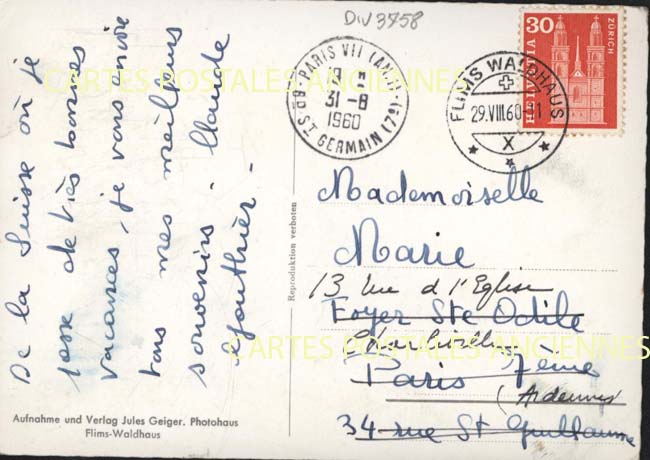 DIV 3758
De la Suisse où je
passe de très bonnes
vacances, je vous envoie
tous mes meilleurs
souvenirs - Claude
Gauthier -
CARTES POSTALES ANCIENNES
PARIS VII (AN.)
31-8
1960
BD ST GERMAIN (7e)
FLIMS WALDHAUS
29.VIII.60-11
X
30
HELVETIA
ZÜRICH
Reproduktion verboten
Mademoiselle
Marie
13 rue de l'Eglise
Foyer Ste Odile
Charleville
CARTES POSTALES ANCIENNES
Paris 7eme
(Ardennes)
34 rue St Guillaume
Aufnahme und Verlag Jules Geiger. Photohaus
Flims-Waldhaus